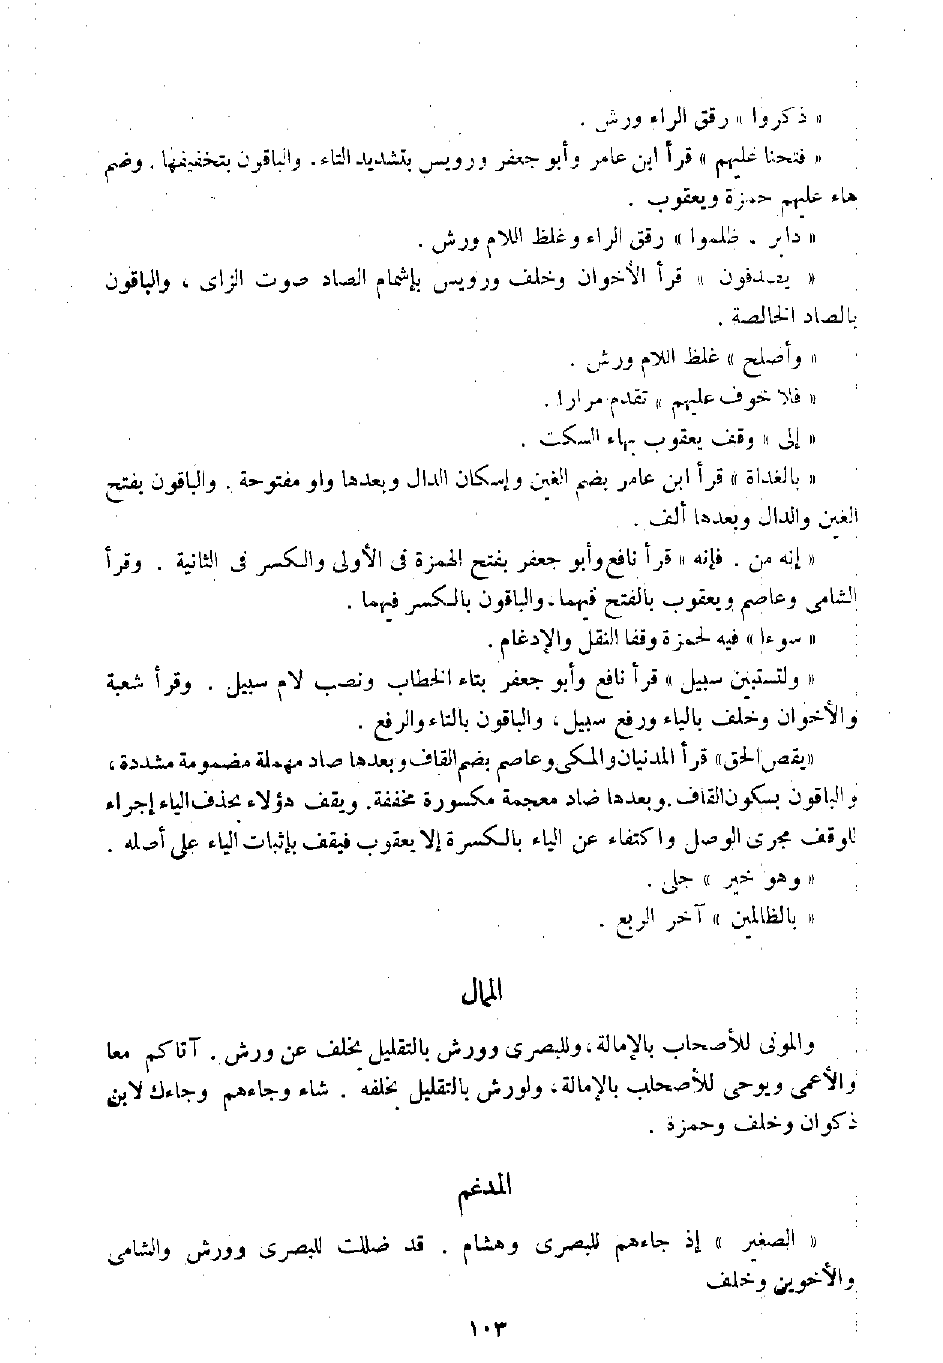 « ذكروا » رقق الراء ورش .
« فتحنا عليهم » قرأ ابن عامر وأبو جعفر ورويس بتشديد التاء . والباقون بتخفيفها . وضم
هاء عليهم حمزة ويعقوب .
« دابر . ظلموا » رقق الراء وغلظ اللام ورش .
« يصدفون » قرأ الأخوان وخلف ورويس بإشمام الصاد صوت الزاى ، والباقون
بالصاد الخالصة .
« وأصلح » غلظ اللام ورش .
« فلا خوف عليهم » تقدم مرارا .
« إلى » وقف يعقوب بهاء السكت .
« بالغداة » قرأ ابن عامر بضم الغين وإسكان الدال وبعدها واو مفتوحة . والباقون بفتح
الغين والدال وبعدها ألف .
« إنه من . فإنه » قرأ نافع وأبو جعفر بفتح الهمزة فى الأولى والكسر فى الثانية . وقرأ
الشامى وعاصم ويعقوب بالفتح فيهما . والباقون بالكسر فيهما .
« سوءا » فيه لحمزة وقفا النقل والإدغام .
« ولتستبين سبيل » قرأ نافع وأبو جعفر بتاء الخطاب ونصب لام سبيل . وقرأ شعبة
والأخوان وخلف بالياء ورفع سبيل ، والباقون بالتاء والرفع .
« يقص الحق » قرأ المدنيان والمكى وعاصم بضم القاف وبعدها صاد مهملة مضمومة مشددة ،
والباقون بسكون القاف . وبعدها ضاد معجمة مكسورة مخففة . ويقف هؤلاء بحذف الياء إجراء
للوقف مجرى الوصل واكتفاء عن الياء بالكسرة إلا يعقوب فيقف بإثبات الياء على أصله .
« وهو خير » جلى .
« بالظالمين » آخر الربع .
الممال
والموتى للأصحاب بالإمالة ، وللبصرى وورش بالتقليل بخلف عن ورش . آتاكم معا
والأعمى ويوحى للأصحاب بالإمالة ، ولورش بالتقليل بخلفه . شاء وجاءهم وجاءك لابن
ذكوان وخلف وحمزة .
المدغم
« الصغير » إذ جاءهم للبصرى وهشام . قد ضللت للبصرى وورش والشامى
والأخوين وخلف
١٠٣